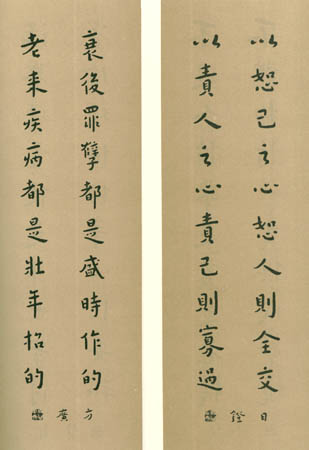 以恕己之心恕人則全交
以責人之心責己則寡過
日鐙
衰後罪孽都是盛時作的
老来疾病都是壯年招的
方廣